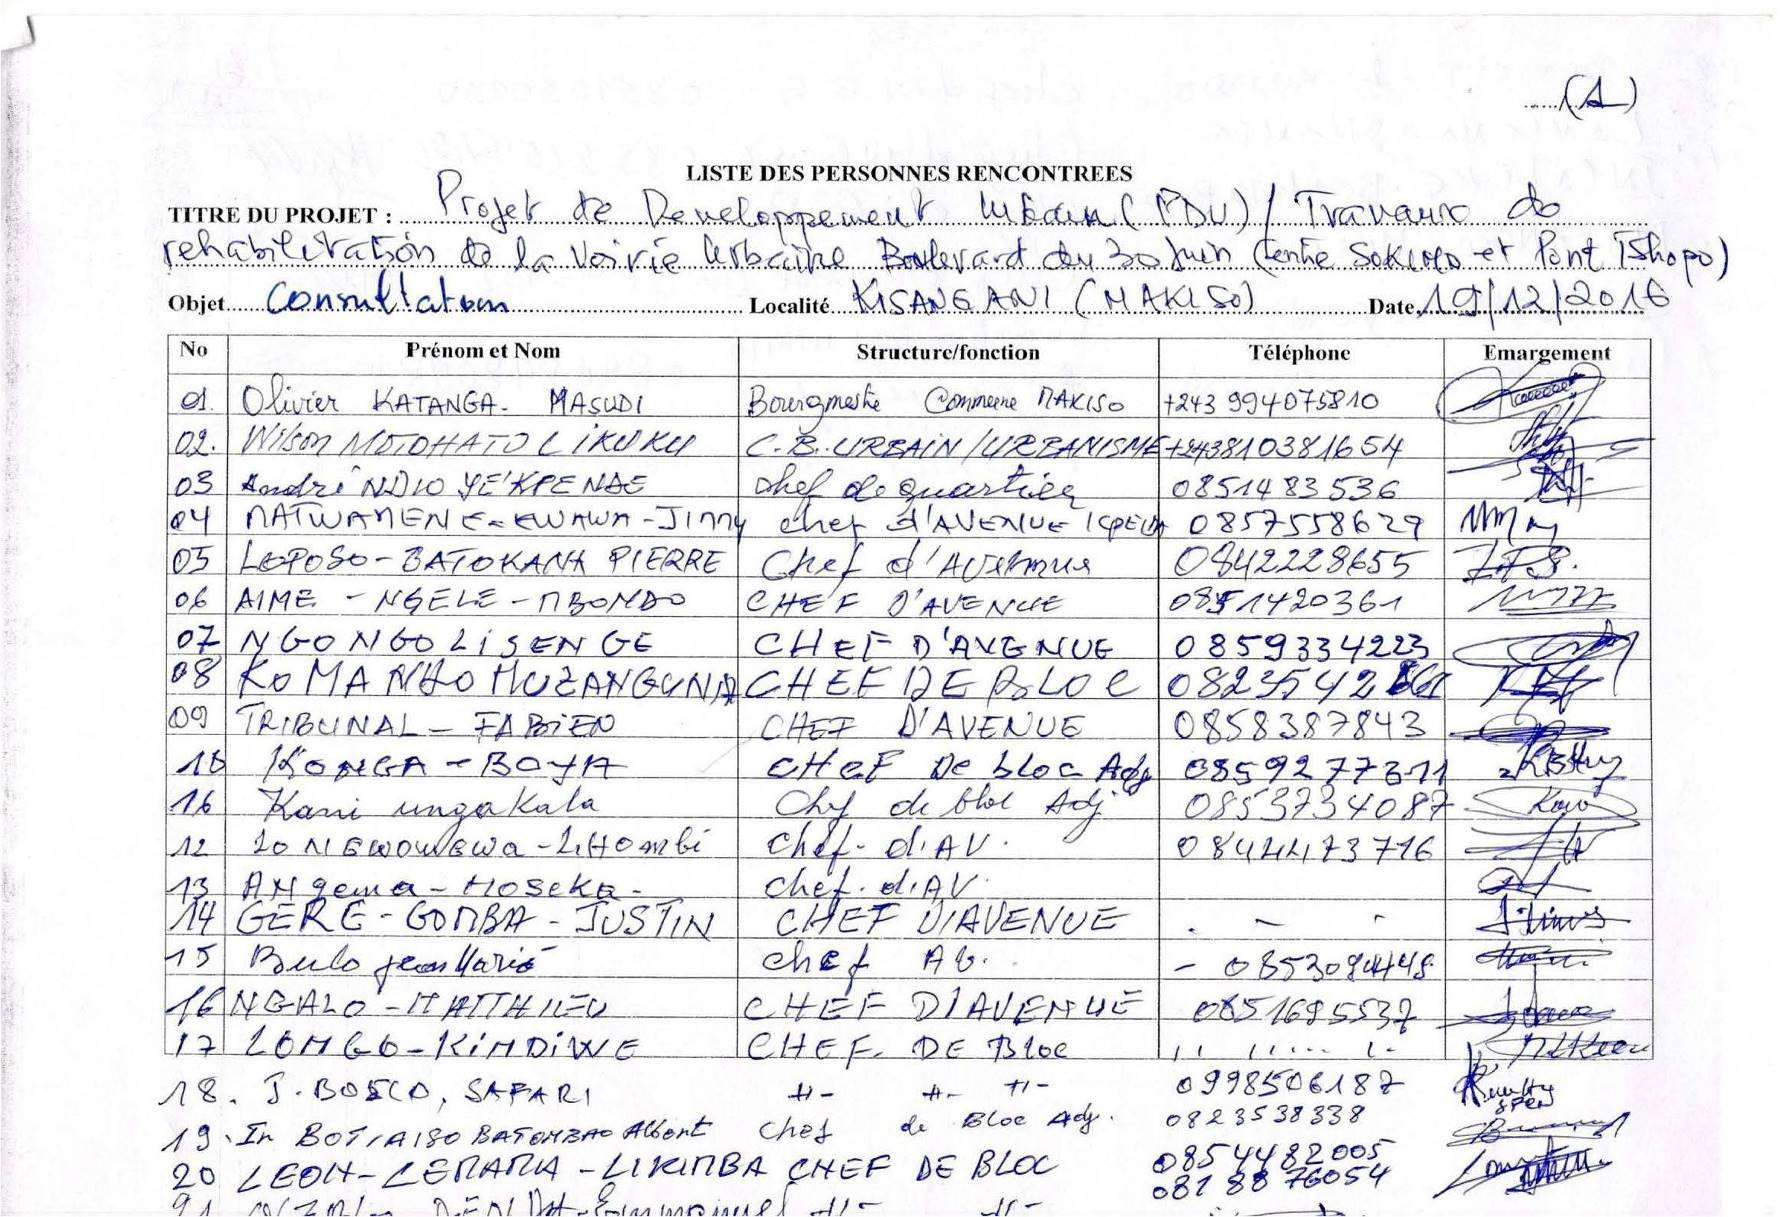 (1)
LISTE DES PERSONNES RENCONTREES
TITRE DU PROJET : Projet de Developpement Urbain (PDU) / Travaux de
rehabilitation de la Voirie Urbaine Boulevard du 30 Juin (entre SOKIMO et Pont Tshopo)
Objet Consultation Localité KISANGANI (MAKISO) Date 19/12/2016
No Prénom et Nom Structure/fonction Téléphone Emargement
01. Olivier KATANGA- MASUDI Bourgmestre Commune MAKISO +243 994075810
02. Wilson MOTOHATO LIKUKU C.B. URBAIN/URBANISME +243810381654
03 André NDIO YE'KPENDE chef de quartier 0851483536
04 chef d'AVENUE 0857558629
05 LOPOSO-BATOKANA PIERRE Chef d'Avenue 0842228655
06 AIME - NGELE - MBONDO CHEF D'AVENUE 0851420361
07 NGONGO LISENGE CHEF D'AVENUE 0859334223
08 CHEF DE BLOC
09 TRIBUNAL - FABIEN CHEF D'AVENUE 0858387843
10 KONGA - BOYA CHEF De bloc Adj
Kani ungakala Chef de bloc Adj 0853734087
12 chef. d'AV.
13 Angema - Moseka - chef. d'AV.
14 GERE - GOMBA - JUSTIN CHEF D'AVENUE - -
15 Bulo Jean Marie chef AV.
16 NGALO - MATTHIEU CHEF D'AVENUE 0851695537
17 LOMGO - KIMDIWE CHEF. DE Bloc
18. J. BOSCO, SAFARI -//- -//- -//- 0998506187
19. Albert chef de Bloc Adj. 0823538338
20 LEON - LEMAMA - LIKIMBA CHEF DE BLOC 0854482005
0818876054
21 Emmanuel -//- -//-